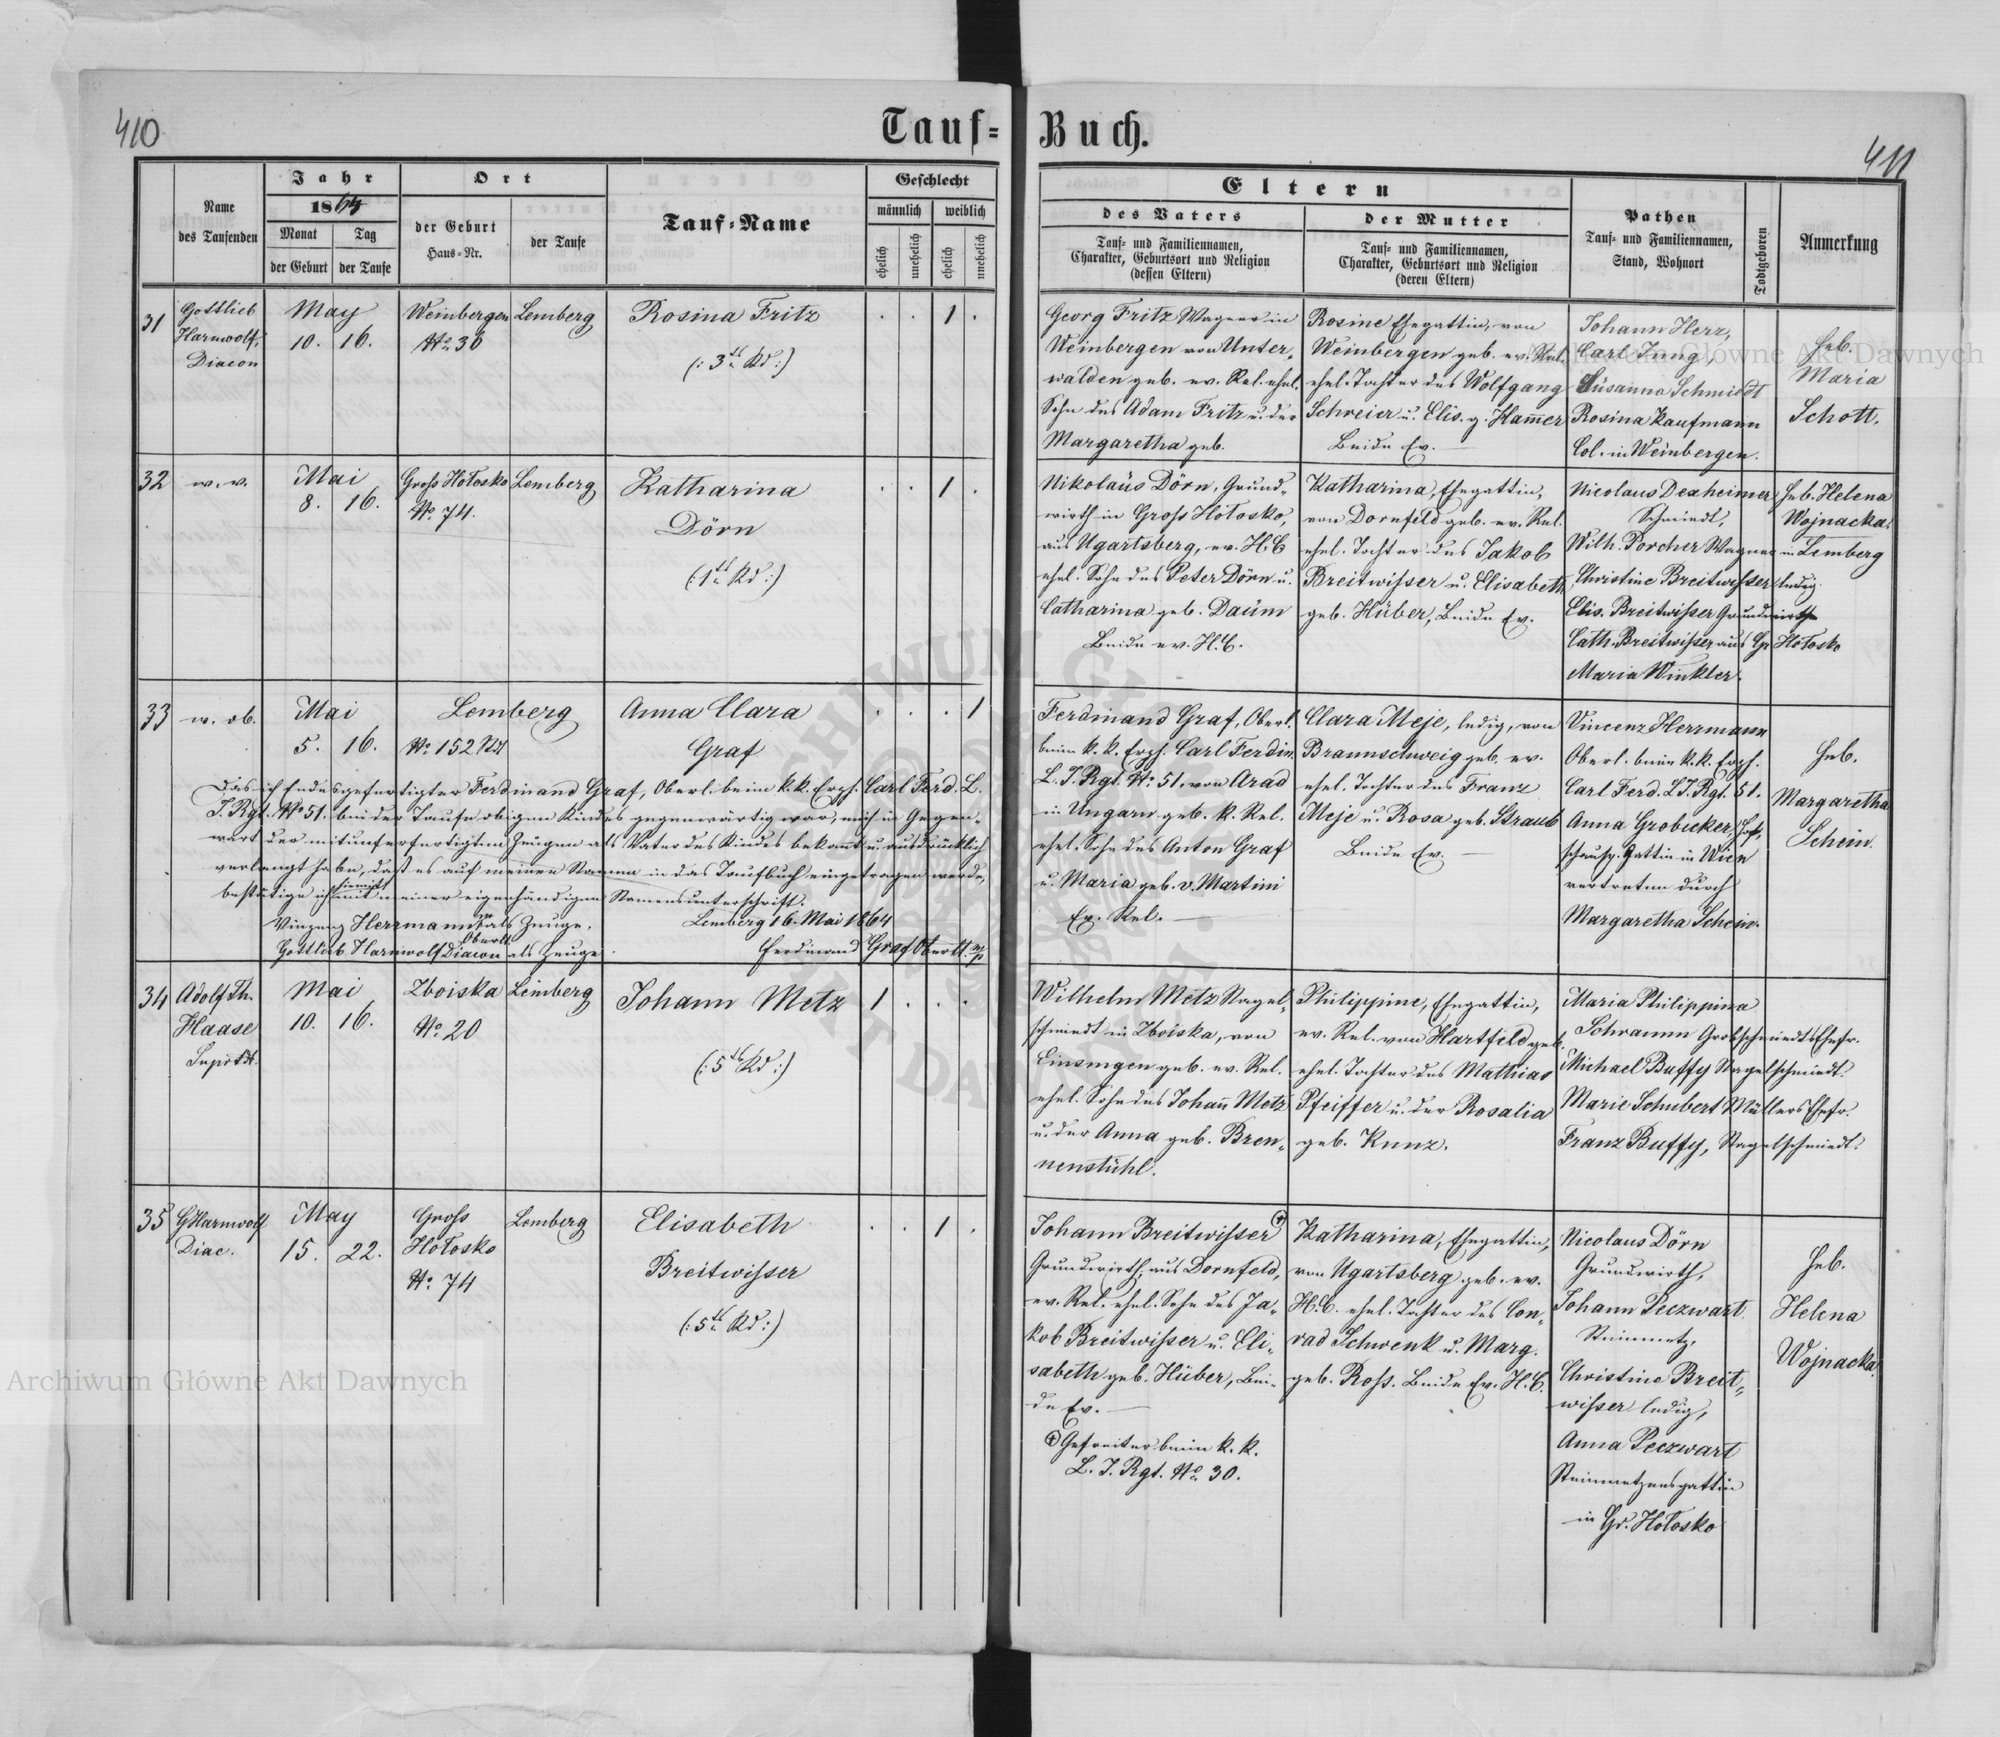 410
Tauf=
Buch.
411
Name
des Taufenden
Jahr
1864
Monat
Tag
der Geburt
der Taufe
Ort
der Geburt
Haus=Nr.
der Taufe
Tauf=Name
Geschlecht
männlich
weiblich
ehelich
unehelich
ehelich
unehelich
Eltern
des Vaters
Tauf= und Familiennamen,
Charakter, Geburtsort und Religion
(dessen Eltern)
der Mutter
Tauf= und Familiennamen,
Charakter, Geburtsort und Religion
(deren Eltern)
Pathen
Tauf= und Familiennamen,
Stand, Wohnort
Todtgeboren
Anmerkung
31
Gottlieb
Harnwolf,
Diacon
May
10. 16.
Weinbergen
No 30
Lemberg
Rosina Fritz
(: 3te Kd :)
. . 1 .
Georg Fritz Wagner in
Weinbergen von Unter-
walden geb. ev. Rel. ehel.
Sohn des Adam Fritz u. der
Margaretha geb.
Rosine Ehegattin, von
Weinbergen geb. ev. Rel.
ehel. Tochter des Wolfgang
Schreier u. Elis. g. Ham̄er
Beide Ev.
Johann Herz,
Carl Jung,
Susanna Schmiedt
Rosina Kaufmann
Col. in Weinbergen.
Heb.
Maria
Schott.
32
w. v.
Mai
8. 16.
Gross Hołosko
No. 74.
Lemberg
Katharina
Dörn
(: 1te Kd :)
. . 1 .
Nikolaus Dörn, Grund-
wirth in Gross Hołosko,
aus Ugartsberg, ev. H.C
ehel. Sohn des Peter Dörn u.
Catharina geb. Daum
Beide ev. H.C.
Katharina, Ehegattin,
von Dornfeld geb. ev. Rel.
ehel. Tochter des Jakob
Breitwisser u. Elisabeth
geb. Huber, Beide Ev.
Nicolaus Dexheimer
Schmiedt,
Wilh. Porcher Wagner in Lemberg
Christine Breitwisser ledig
Elis. Breitwisser Grundwirthe
Cath. Breitwisser aus Gr Hołosko
Maria Winkler.
Heb. Helena
Wojnacka.
33
w. ob.
Mai
5. 16.
Lemberg
No. 152
Anna Clara
Graf
. . . 1
Das ich Endesgefertigter Ferdinand Graf, Oberl. beim k.k. Erzh. Carl Ferd. L.
I. Rgt. No 51. bei der Taufe obigen Kindes gegenwärtig war, mich in Gegen-
wart der mitunterfertigten Zeugen als Vater des Kindes bekannt u. ausdrücklich
verlangt habe, dass es auf meinen Namen in das Taufbuch eingetragen werde,
bestätige ich hiemit mit meiner eigenhändigen Namensunterschrift.
Vinzenz Herrmann als Zeuge. Lemberg 16. Mai 1864
Gottlieb Harnwolf Diacon als Zeuge. Ferdinand Graf Oberlt. m/p
Ferdinand Graf, Oberl.
beim k.k. Erzh. Carl Ferdin.
L. I. Rgt. No. 51. von Arad
in Ungarn geb. k. Rel.
ehel. Sohn des Anton Graf
u. Maria geb. v. Martini
Ev. Rel.
Clara Meje, ledig, von
Braunschweig geb. ev.
ehel. Tochter des Franz
Meje u. Rosa geb. Straub
Beide Ev.
Vincenz Herrmann
Oberl. beim k.k. Erzh.
Carl Ferd. L I. Rgt. 51.
Anna Grobecker, Hof-
schausp. Gattin in Wien
vertreten durch
Margaretha Schein.
Heb.
Margaretha
Schein.
34
Adolf Th.
Haase
Sup
Mai
10. 16.
Zboiska
No. 20
Lemberg
Johann Metz
(: 5te Kd :)
1 . . .
Wilhelm Metz Nagel-
schmiedt in Zboiska, von
Einsingen geb. ev. Rel.
ehel. Sohn des Johan̄ Metz
u. der Anna geb. Bren-
nenstuhl.
Philippine, Ehegattin,
ev. Rel. von Hartfeld geb.
ehel. Tochter des Mathias
Pfeiffer u. der Rosalia
geb. Kunz.
Maria Philippina
Schramm Grobschmiedts Ehefr.
Michael Buffy Nagelschmiedt.
Marie Schubert Müllers Ehefr.
Franz Buffy, Nagelschmiedt.
35
G Harnwolf
Diac.
May
15. 22.
Gross
Hołosko
No. 74
Lemberg
Elisabeth
Breitwisser
(: 5te Kd :)
. . 1 .
Johann Breitwisser
Grundwirth, aus Dornfeld,
ev. Rel. ehel. Sohn des Ja-
kob Breitwisser u. Eli-
sabeth geb. Huber, Bei-
de Ev.
Gefreiter beim k.k.
L. I. Rgt. No. 30.
Katharina, Ehegattin,
von Ugartsberg geb. ev.
H.C. ehel. Tochter des Con-
rad Schwenk u. Marg.
geb. Ross. Beide Ev. H.C.
Nicolaus Dörn
Grundwirth,
Johann Peczwart
Steinmetz,
Christine Breit-
wisser ledig,
Anna Peczwart
Steinmetzensgattin
in Gr. Hołosko
Heb.
Helena
Wojnacka.
Archiwum Główne Akt Dawnych
Archiwum Główne Akt Dawnych